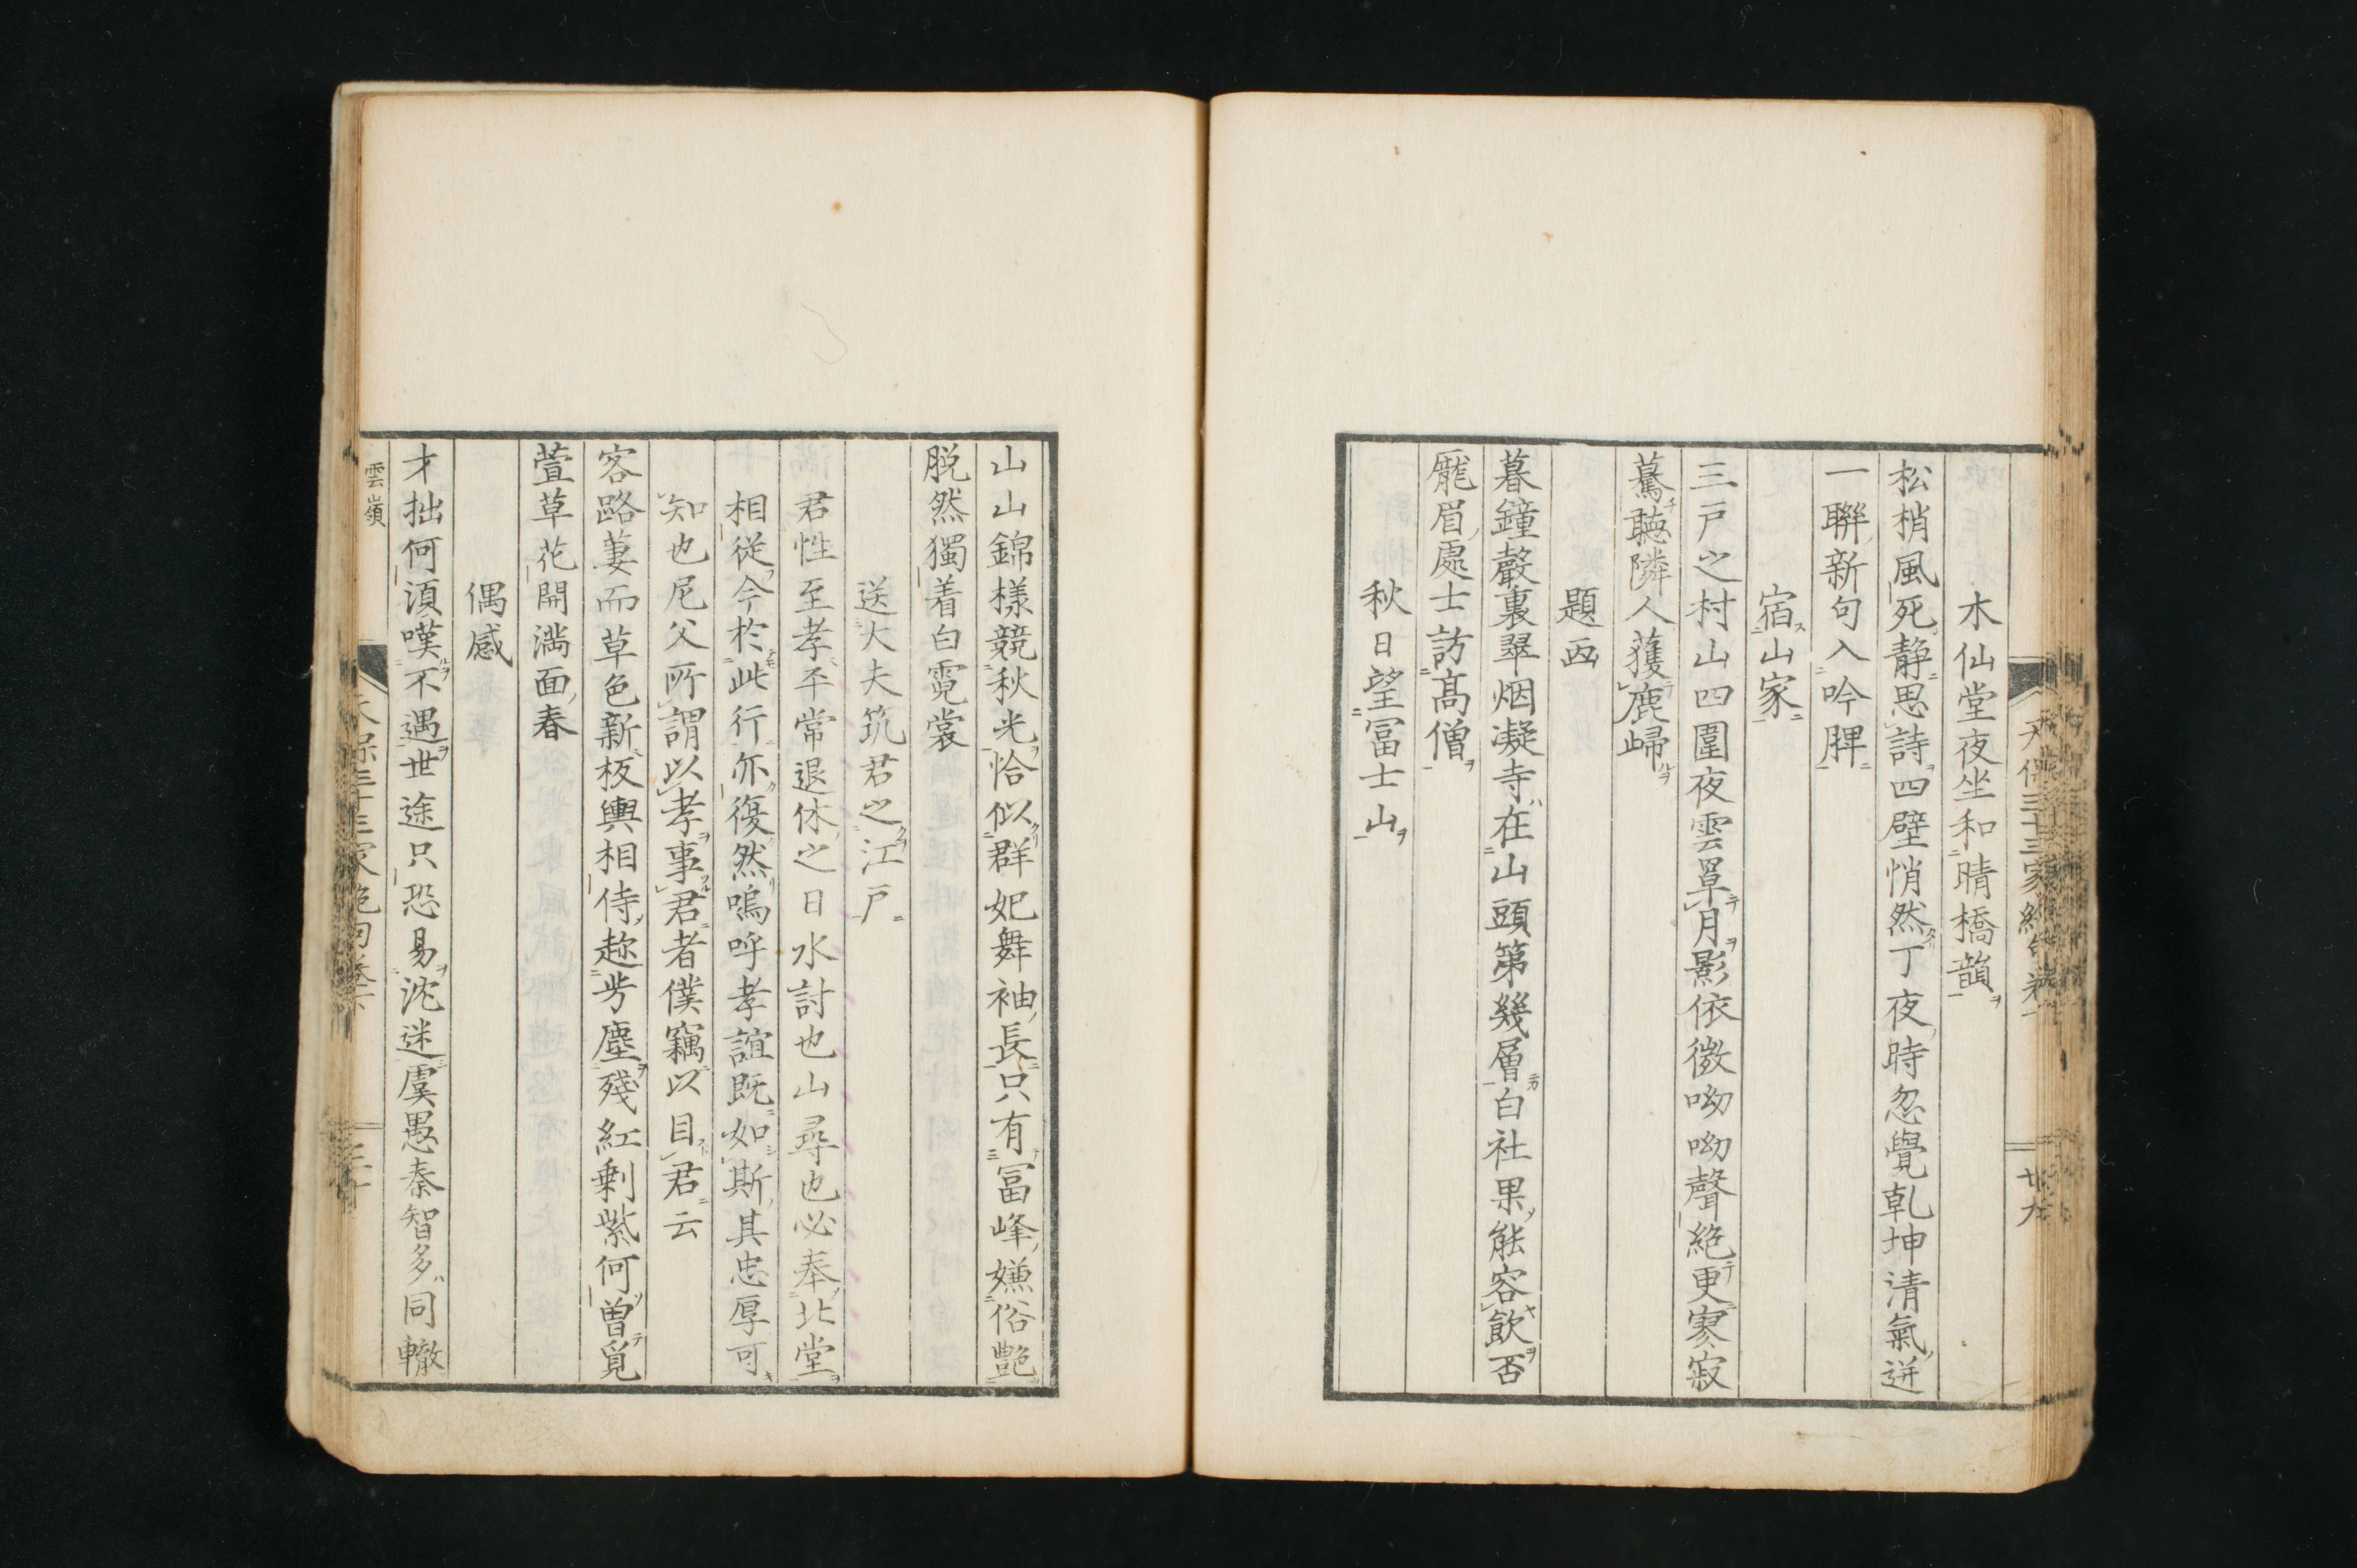 木仙堂夜坐和晴橋韻
松梢風死静思詩四壁悄然丁夜時忽覺乾坤清氣迸
一聯新句入吟脾
宿山家
三戸之村山四圍夜雲罩月影依微呦呦聲絶更寥寂
驀聽隣人獲鹿歸
題画
暮鐘聲裏翠烟凝寺在山頭第幾層白社果能容飲否
厖眉處士訪髙僧
秋日望冨士山
山山錦様競秋光恰似群妃舞袖長只有冨峰嫌俗艶
脱然獨着白霓裳
送大夫筑君之江戸
君性至孝平常退休之日水討也山尋也必奉北堂
相從今於此行亦復然嗚呼孝誼既如斯其忠厚可
知也尼父所謂以孝事君者僕竊以目君云
客路萋而草色新板輿相侍趂芳塵殘紅剰紫何曽覓
萱草花開満面春
偶感
才拙何須嘆不遇世途只恐易沈迷虞愚秦智多同轍
雲嶺